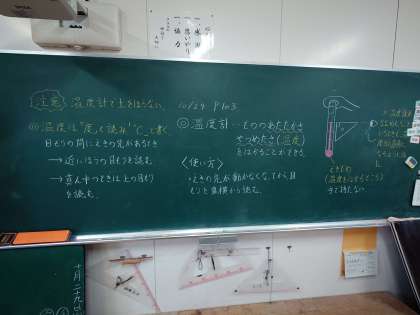 一、思いやり
一、協力
注意 温度計で土をほらない。
◎温度は"度"と読み"℃"と書く。
目もりの間にえきの先があるとき
→近いほうの目もりを読む
→真ん中のときは上の目もり
を読む。
10/29 P103
◎温度計…もののあたたかさ
やつめたさ(温度)
をはかることができる。
〈使い方〉
・えきの先が動かなくなってから目
もりを真横から読む。
えきだめ
(温度をはかるところ)
を
持たない
十月二十九日